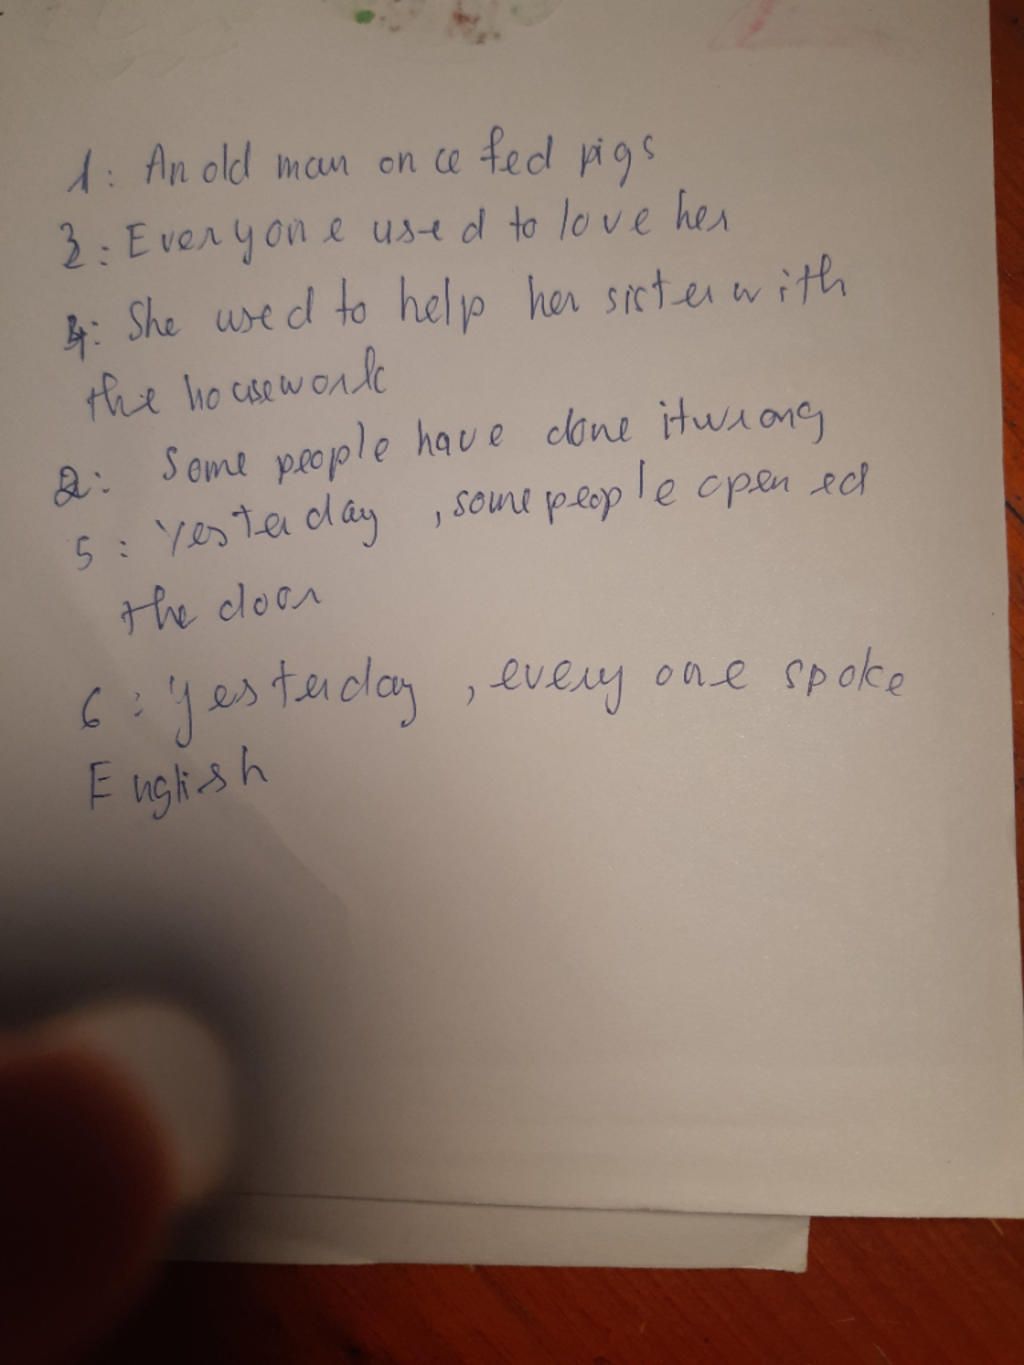 1: An old man once fed pigs
3: Everyone used to love her
4: She used to help her sister with
the housework
2: Some people have done it wrong
5: Yesterday, some people opened
the door
6: Yesterday, everyone spoke
English